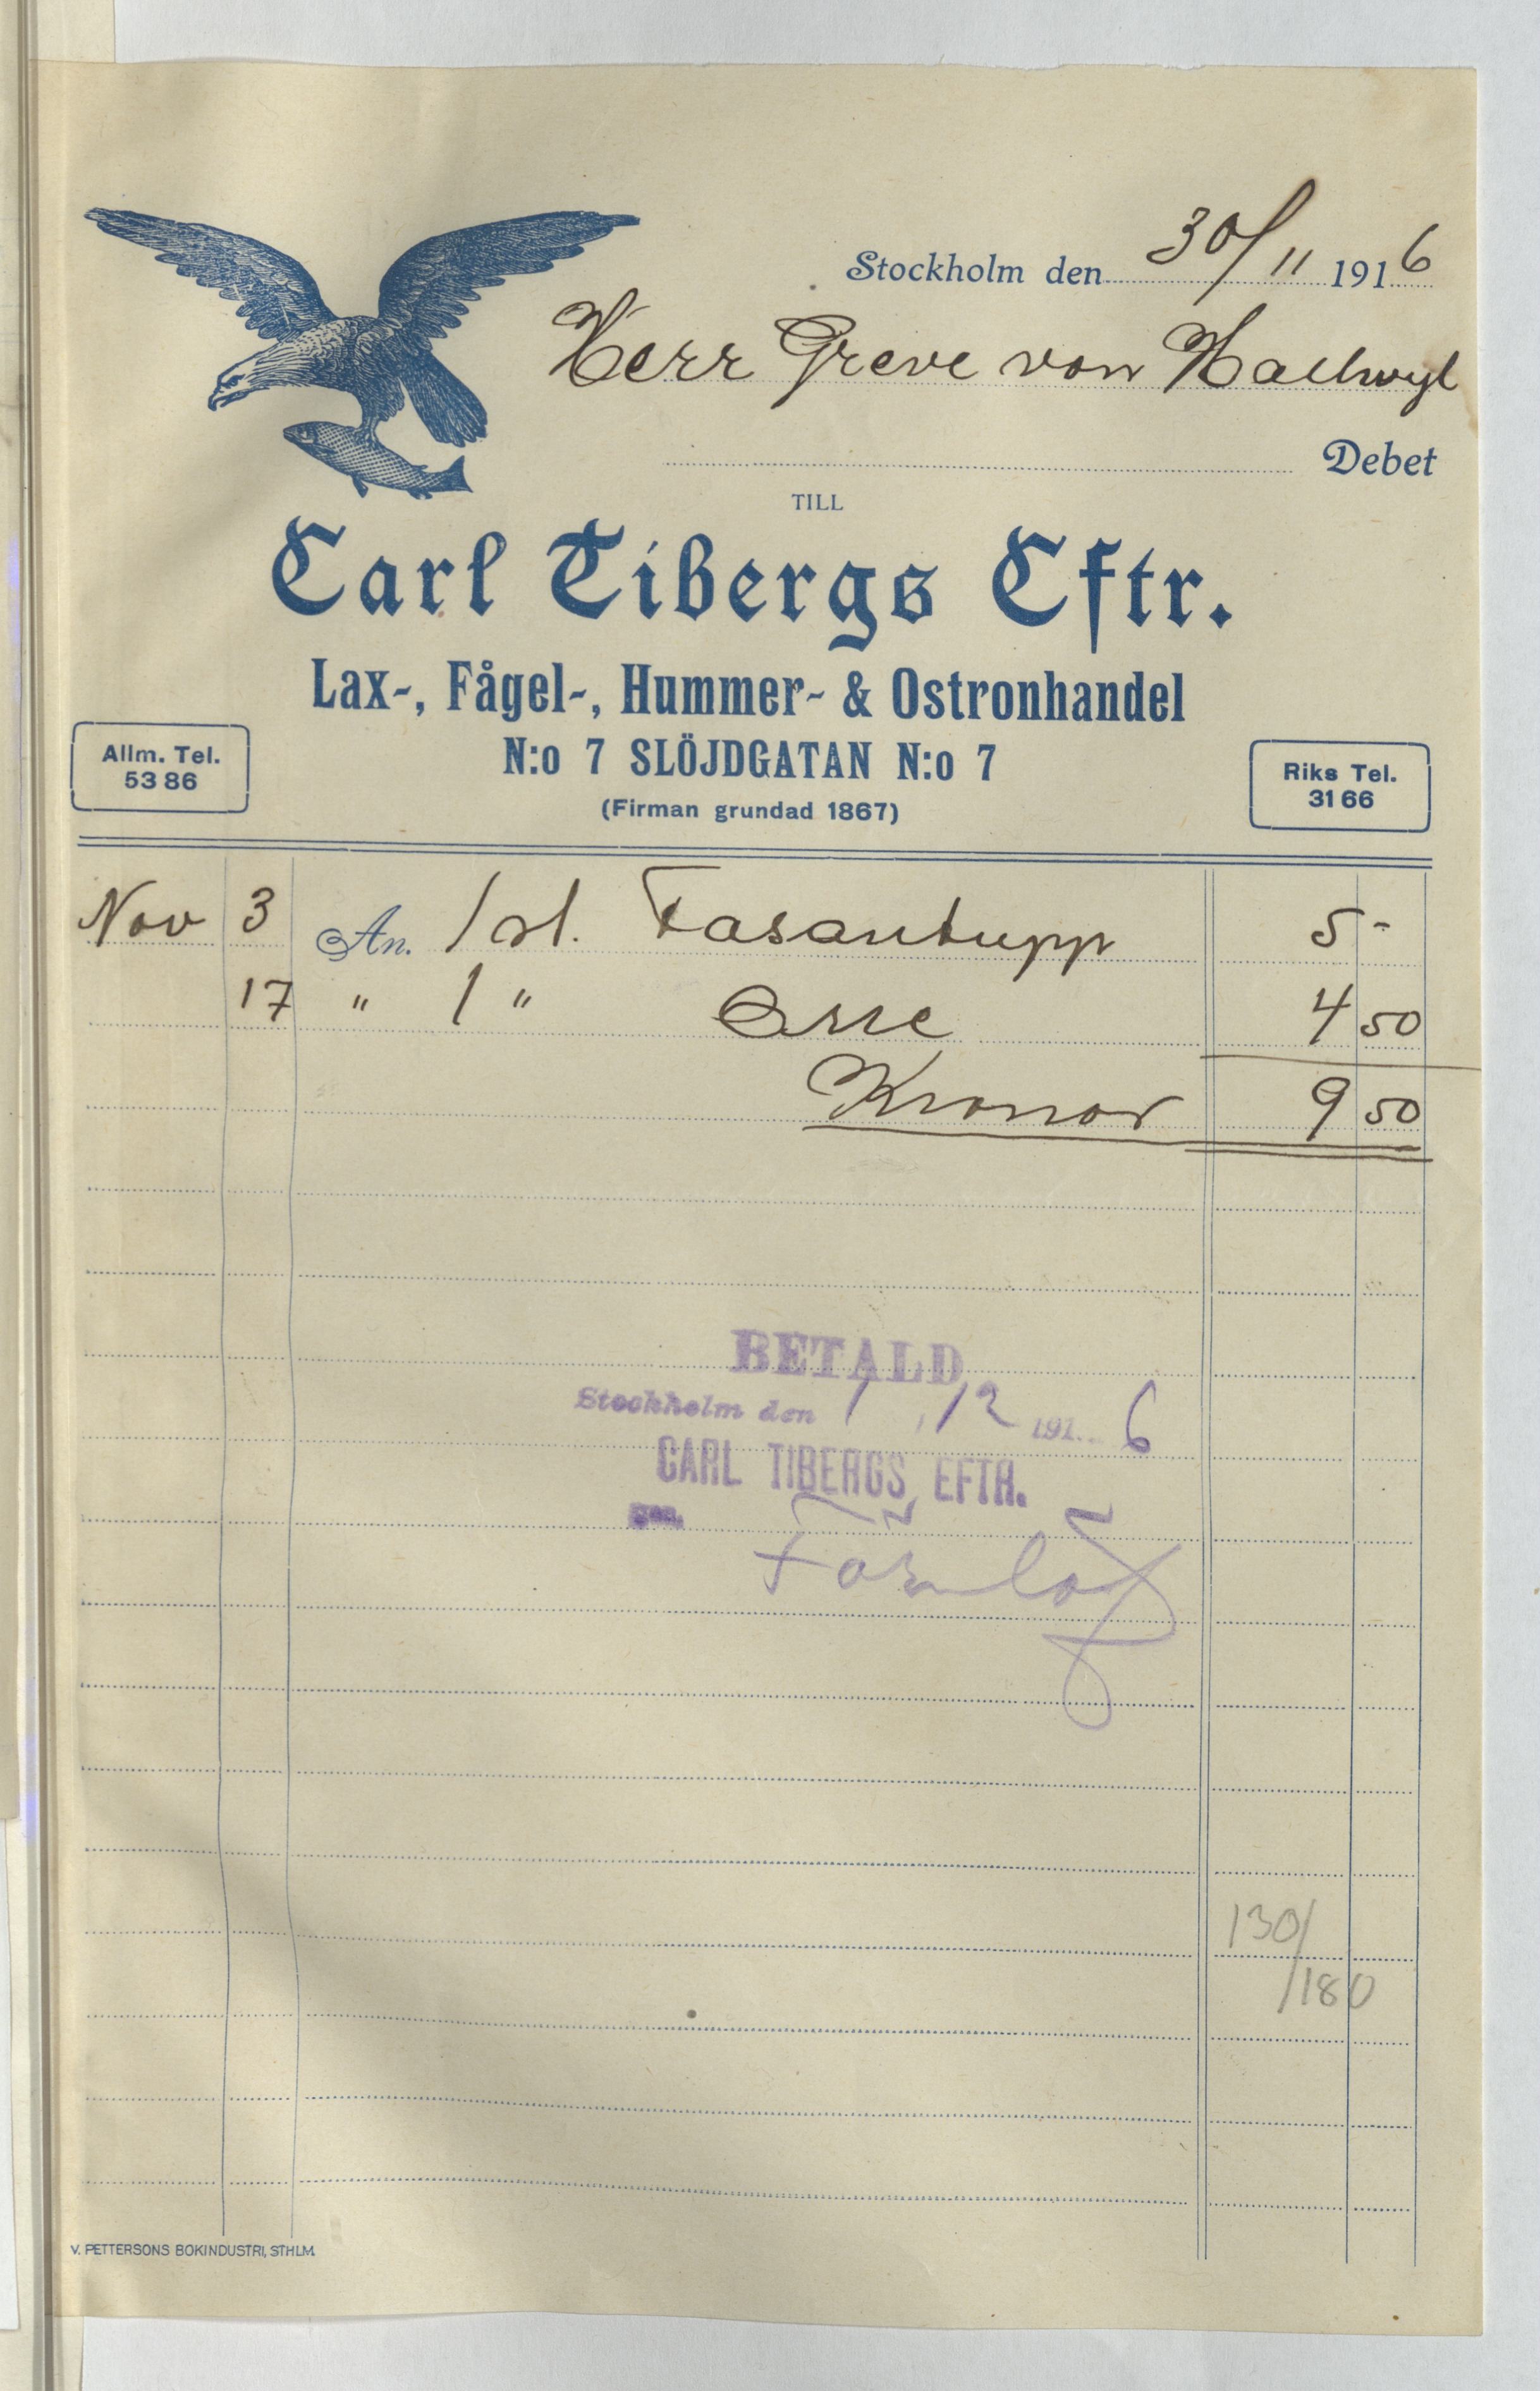 Stockholm den 30/11 1916
Herr Greve von Hallwyl
Debet
TILL
Carl Tibergs Eftr.
Lax-, Fågel-, Hummer- & Ostronhandel
N:o 7 SLÖJDGATAN N:o 7
(Firman grundad 1867)
Allm. Tel.
53 86
Riks Tel.
31 66
Nov 3 An. 1 st. Fasantupp 5 -
17 " 1 " Orre 4 50
Kronor 9 50
BETALD
Stockholm den 1/12 1916
CARL TIBERGS EFTR.
130/
/180
V. PETTERSONS BOKINDUSTRI, STHLM.